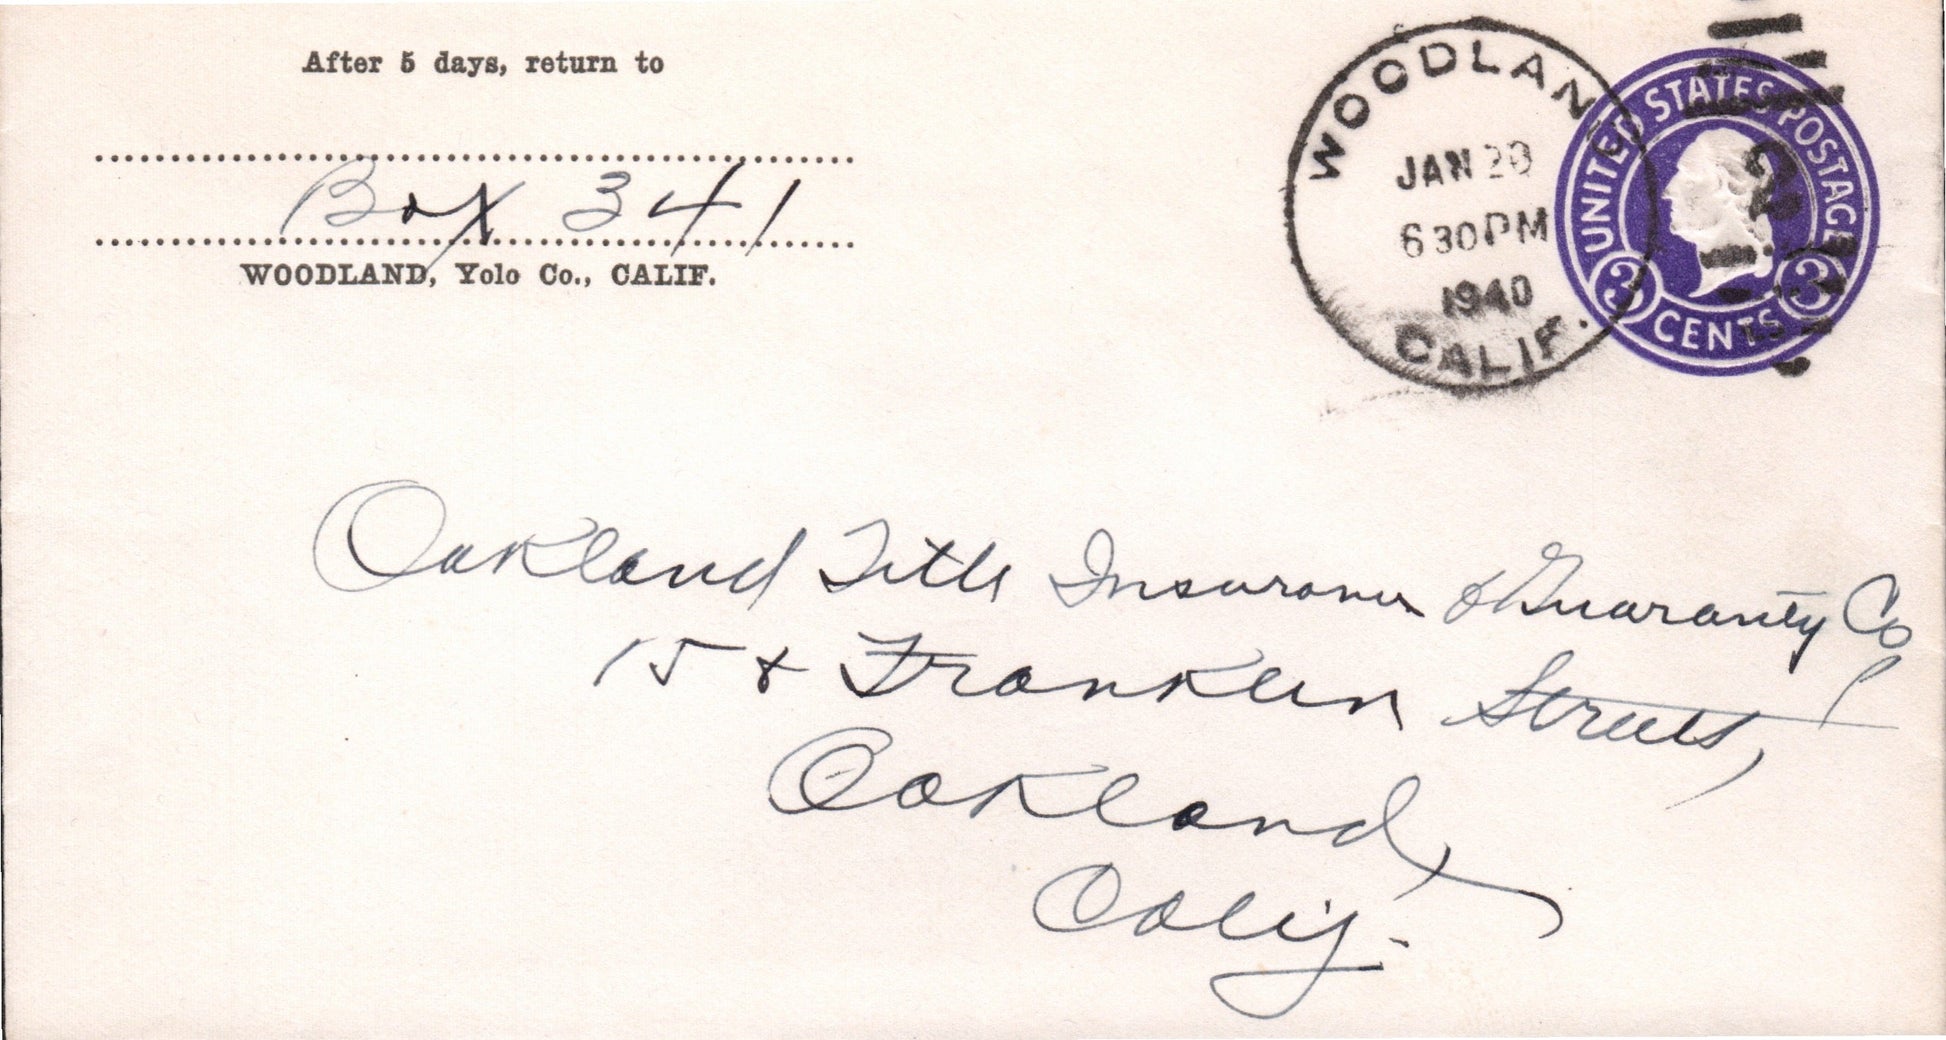 After 5 days, return to
Box 341
WOODLAND, Yolo Co., CALIF.
WOODLAND
JAN 20
6 30 PM
1940
CALIF.
UNITED STATES POSTAGE
3 3
CENTS
Oakland Title Insurance & Guaranty Co
15 & Franklin Streets,
Oakland,
Calif.